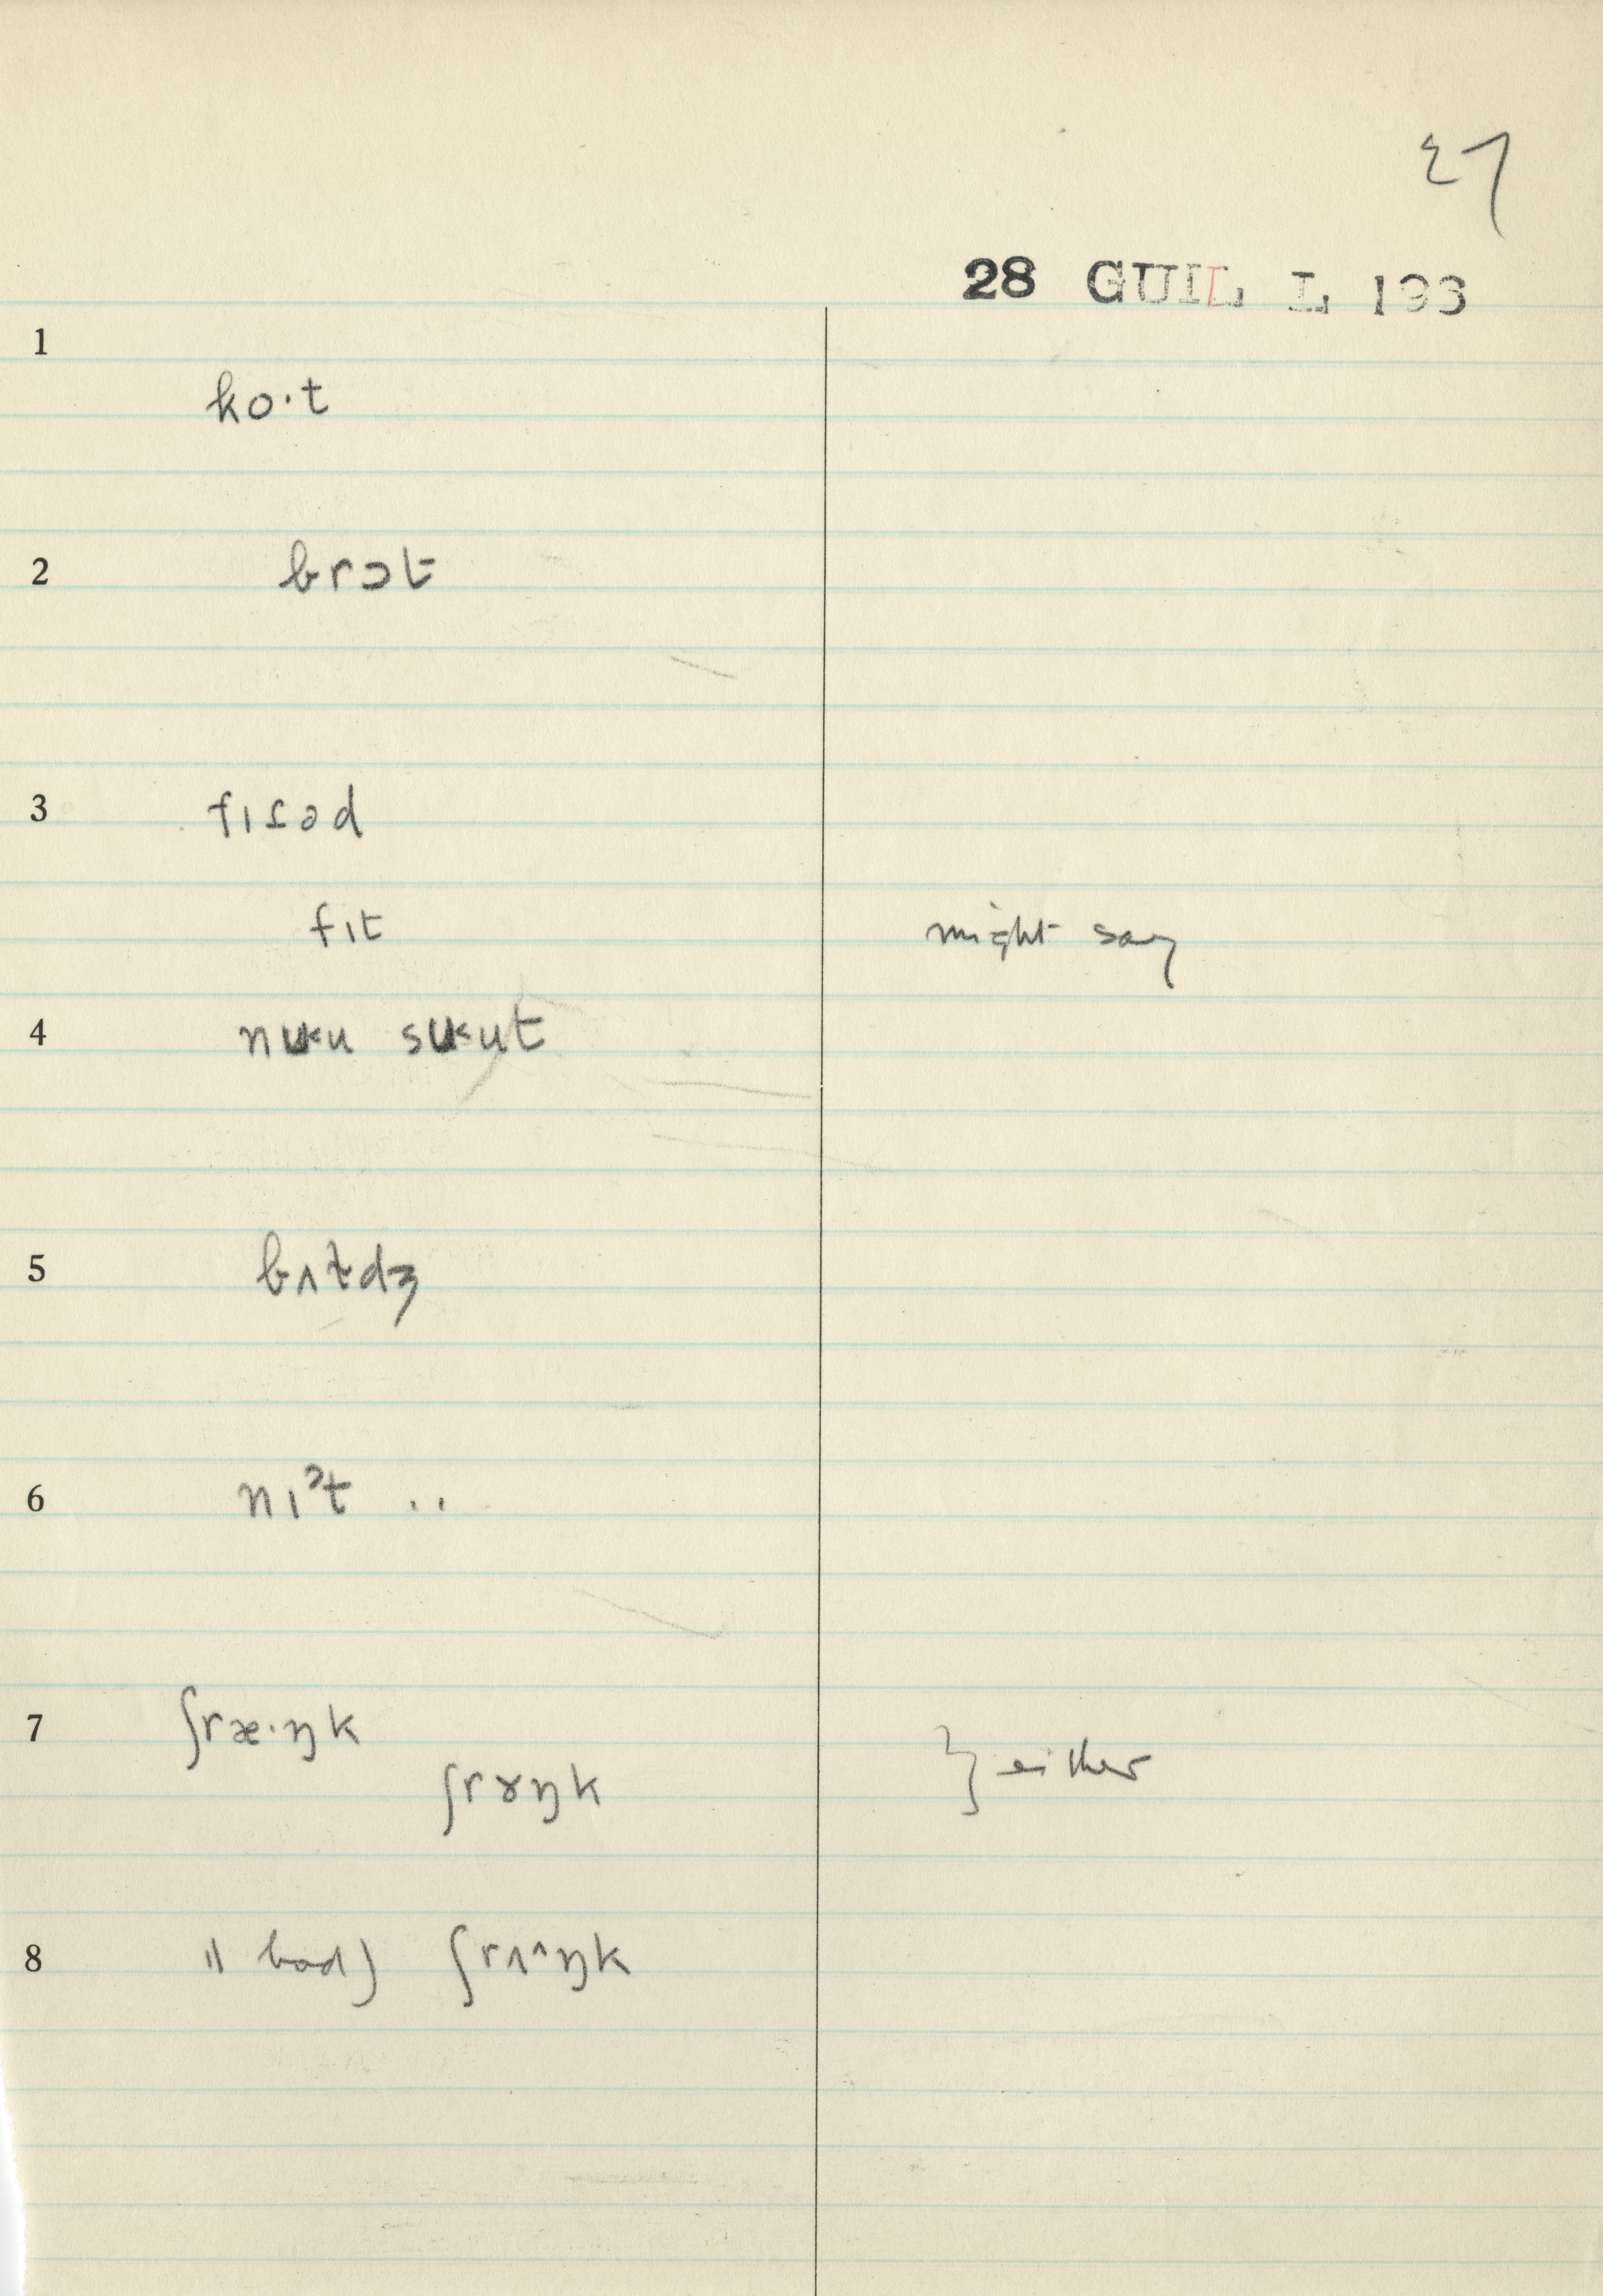 27
28 GUIL L 193
1
ko·t
2
brɔt
3
fɪɾəd
fɪt might say
4
nuku sukut
5
bʌɫdʒ
6
nɪˀt ..
7
ʃræ·ŋk
ʃrɤŋk } either
8
" bad) ʃrʌ^ŋk